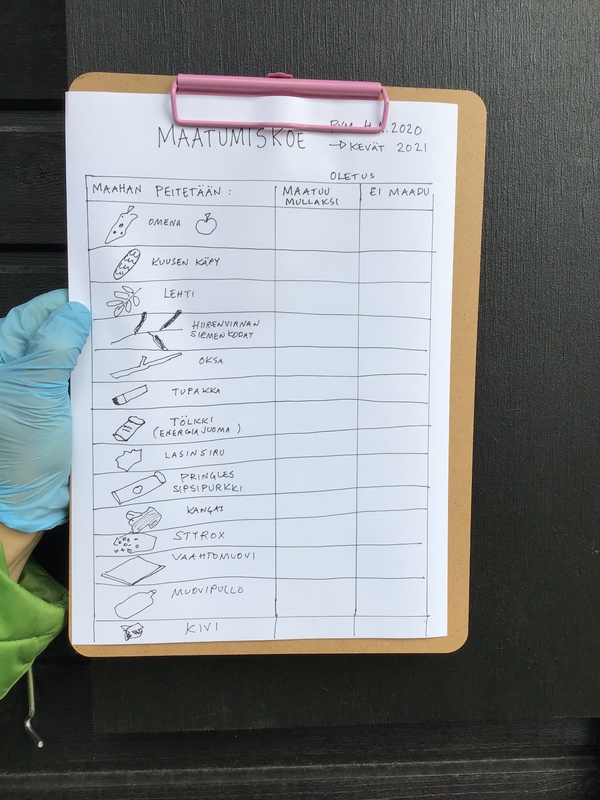 MAATUMISKOE
PVM 4. .2020
→ KEVÄT 2021
OLETUS
MAAHAN PEITETÄÄN:
MAATUU MULLAKSI
EI MAADU
OMENA
KUUSEN KÄPY
LEHTI
HIIRENVIRNAN
SIEMENKODAT
OKSA
TUPAKKA
TÖLKKI
(ENERGIAJUOMA)
LASINSIRU
PRINGLES
SIPSIPURKKI
KANGAS
STYROX
VAAHTOMUOVI
MUOVIPULLO
KIVI